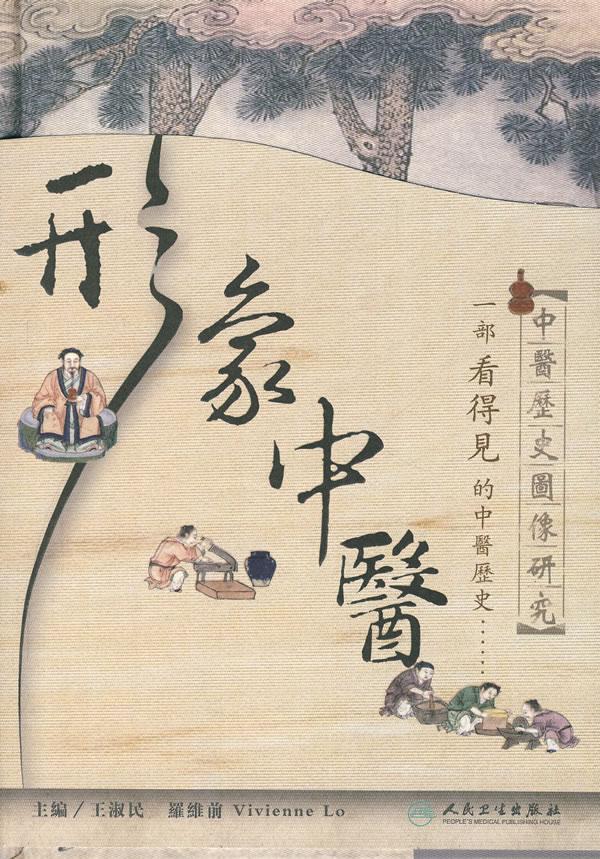 形象中醫
【中醫歷史圖像研究】
一部看得見的中醫歷史……
主編／王淑民　羅維前 Vivienne Lo
人民卫生出版社
PEOPLE'S MEDICAL PUBLISHING HOUSE